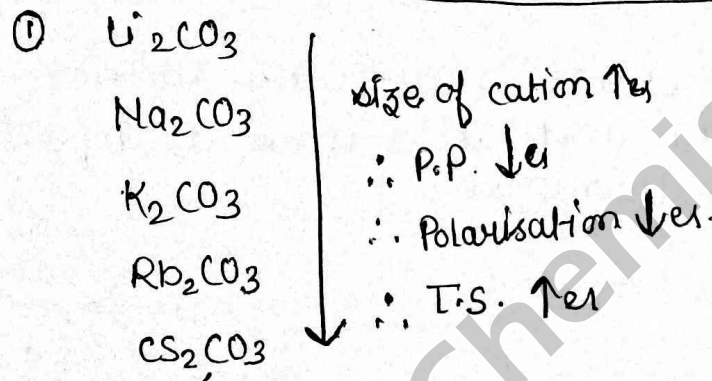 ① Li2CO3
Na2CO3
K2CO3
Rb2CO3
CS2CO3
size of cation ↑es
∴ P.P. ↓es
∴ Polarisation ↓es.
∴ T.S. ↑es
Chemis